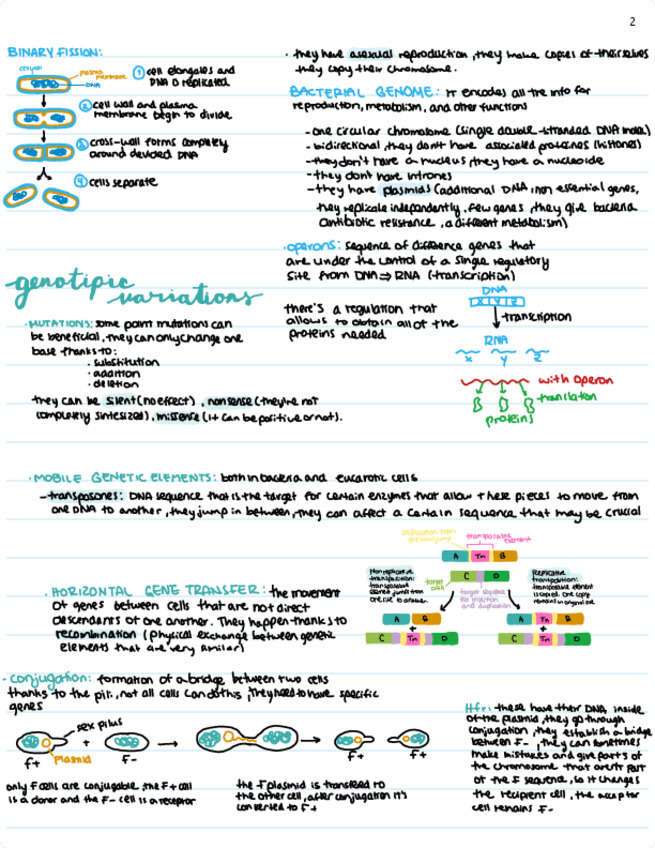 2
BINARY FISSION:
plasma
membrane
DNA
① cell elongates and
DNA is replicated
② cell wall and plasma
membrane begin to divide
③ cross-wall forms completely
around devided DNA
④ cells separate
· they have asexual reproduction, they make copies of themselves
they copy their chromosome.
BACTERIAL GENOME: it encodes all the info for
reproduction, metabolism, and other functions
-one circular chromosome (single double-stranded DNA molec)
-bidirectional, they don't have associated proteines (histones)
-they don't have a nucleus, they have a nucleoide
-they dont have introns
-they have plasmids (additional DNA, non essential genes,
they replicate independently, few genes, they give bacteria
antibiotic resistance, a different metabolism)
·operons: sequence of difference genes that
are under the control of a single regulatory
site from DNA ⇒ RNA (transcription)
there's a regulation that
allows to obtain all of the
proteins needed
DNA
X Y Z
transcription
RNA
X Y Z
with operon
translation
proteins
genotipic
variations
·MUTATIONS: some point mutations can
be beneficial, they can only change one
base thanks to:
· substitution
· addition
· deletion
they can be silent (no effect), nonsense (they're not
completely sintesized), missense (it can be positive or not).
·MOBILE GENETIC ELEMENTS: both in bacteria and eucarotic cells
-transposones: DNA sequence that is the target for certain enzymes that allow these pieces to move from
one DNA to another, they jump in between, they can affect a certain sequence that may be crucial
transposable
element
A Tn B
Nonreplicative
transposition:
transposable
element jumps from
one site to another.
target
DNA
C D
target sequence
for insertion
and duplication
Replicative
transposition:
transposable element
is copied. one copy
remains in original site
A B
+
C Tn D
A Tn B
+
C Tn D
·HORIZONTAL GENE TRANSFER: the movement
of genes between cells that are not direct
descendants of one another. They happen thanks to
recombination (physical exchange between genetic
elements that are very similar)
·conjugation: formation of a bridge between two cells
thanks to the pili, not all cells can do this, they need to have specific
genes
sex pilus
+
F+
Plasmid
F-
F+
F+
only F cells are conjugable, the F+ cell
is a donor and the F- cell is a receptor
the F plasmid is transfered to
the other cell, after conjugation it's
converted to F+
Hfr: these have their DNA inside
of the plasmid, they go through
conjugation, they establish a bridge
between F-, they can sometimes
make mistakes and give parts of
the chromosome that aren't part
of the F sequence, so it changes
the recipient cell, the acceptor
cell remains F-